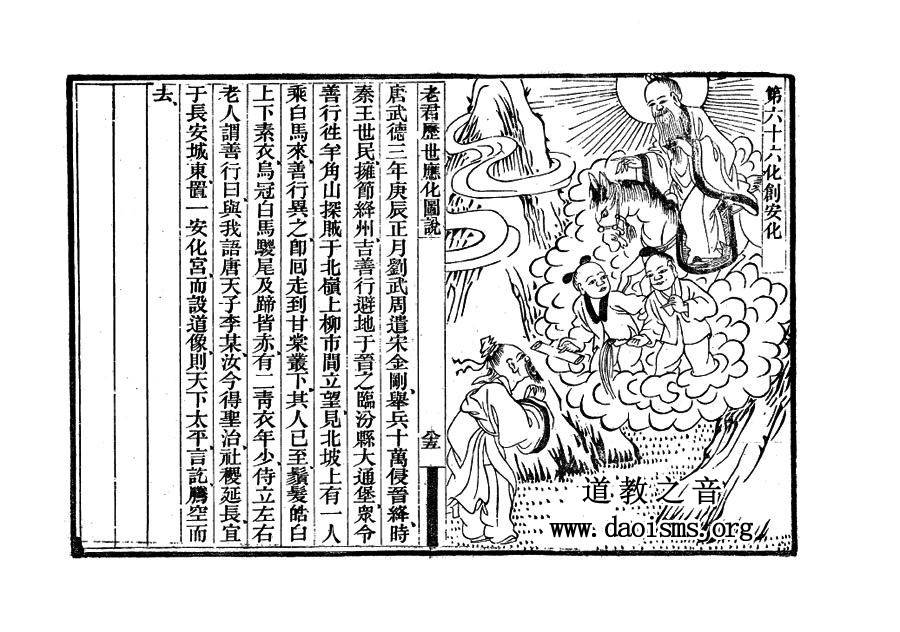 第六十六化創安化
道教之音
www.daoisms.org
老君歷世應化圖說
八五
唐武德三年庚辰正月劉武周遣宋金剛舉兵十萬侵晉絳時
秦王世民擁節絳州吉善行避地于晉之臨汾縣大通堡眾令
善行往羊角山探賊于北嶺上柳市間立望見北坡上有一人
乘白馬來善行異之卽囘走到甘棠叢下其人已至鬚髮皓白
上下素衣烏冠白馬騣尾及蹄皆赤有二靑衣年少侍立左右
老人謂善行曰與我語唐天子李某汝今得聖治社稷延長宜
于長安城東置一安化宮而設道像則天下太平言訖騰空而
去